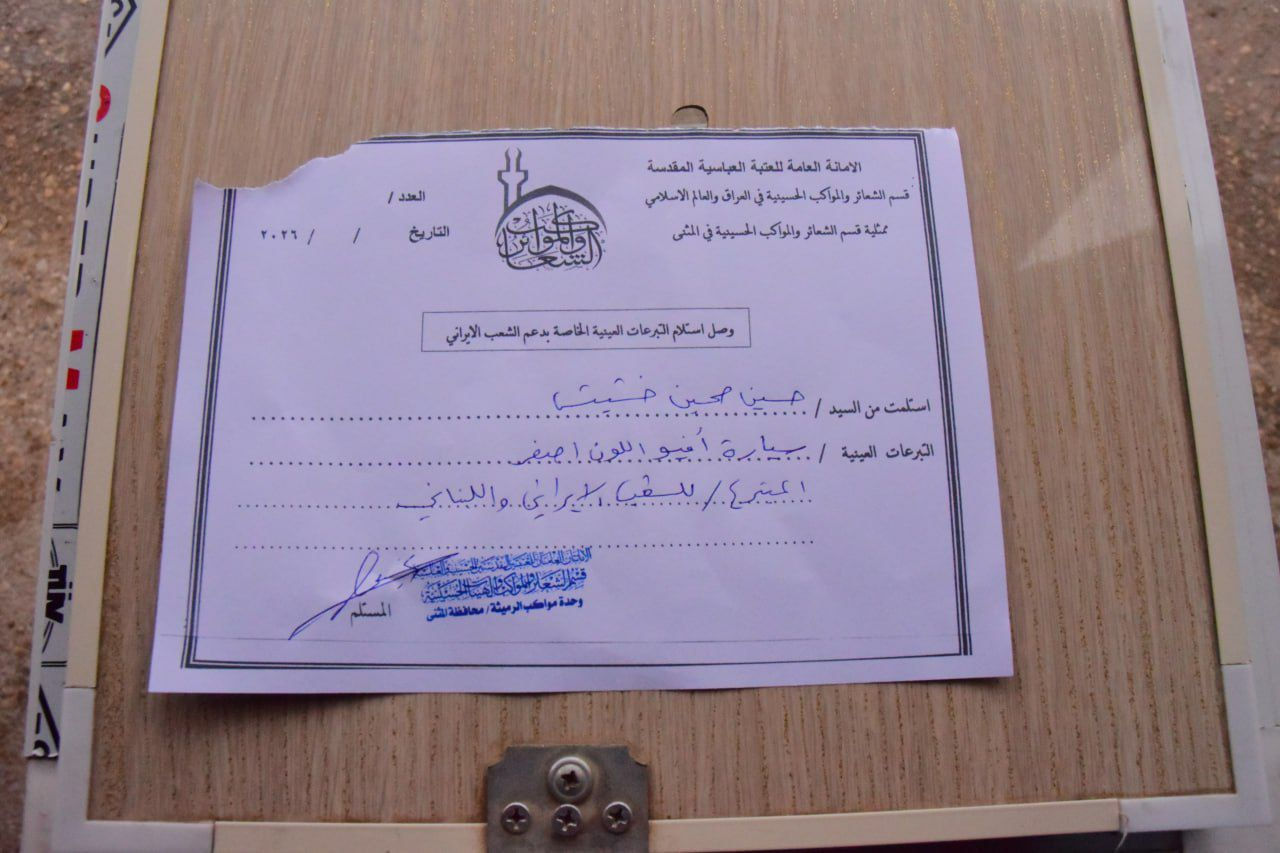 الامانة العامة للعتبة العباسية المقدسة
قسم الشعائر والمواكب الحسينية في العراق والعالم الاسلامي
ممثلية قسم الشعائر والمواكب الحسينية في المثنى
العدد /
التاريخ / / ٢٠٢٦
الشعائر والمواكب
وصل استلام التبرعات العينية الخاصة بدعم الشعب الايراني
استلمت من السيد / حسين
التبرعات العينية / سيارة أفيو اللون اصفر
المتبرع / للشعب الايراني واللبناني
قسم الشعائر والمواكب والهيئات الحسينية
وحدة مواكب الرميثة / محافظة المثنى
المستلم